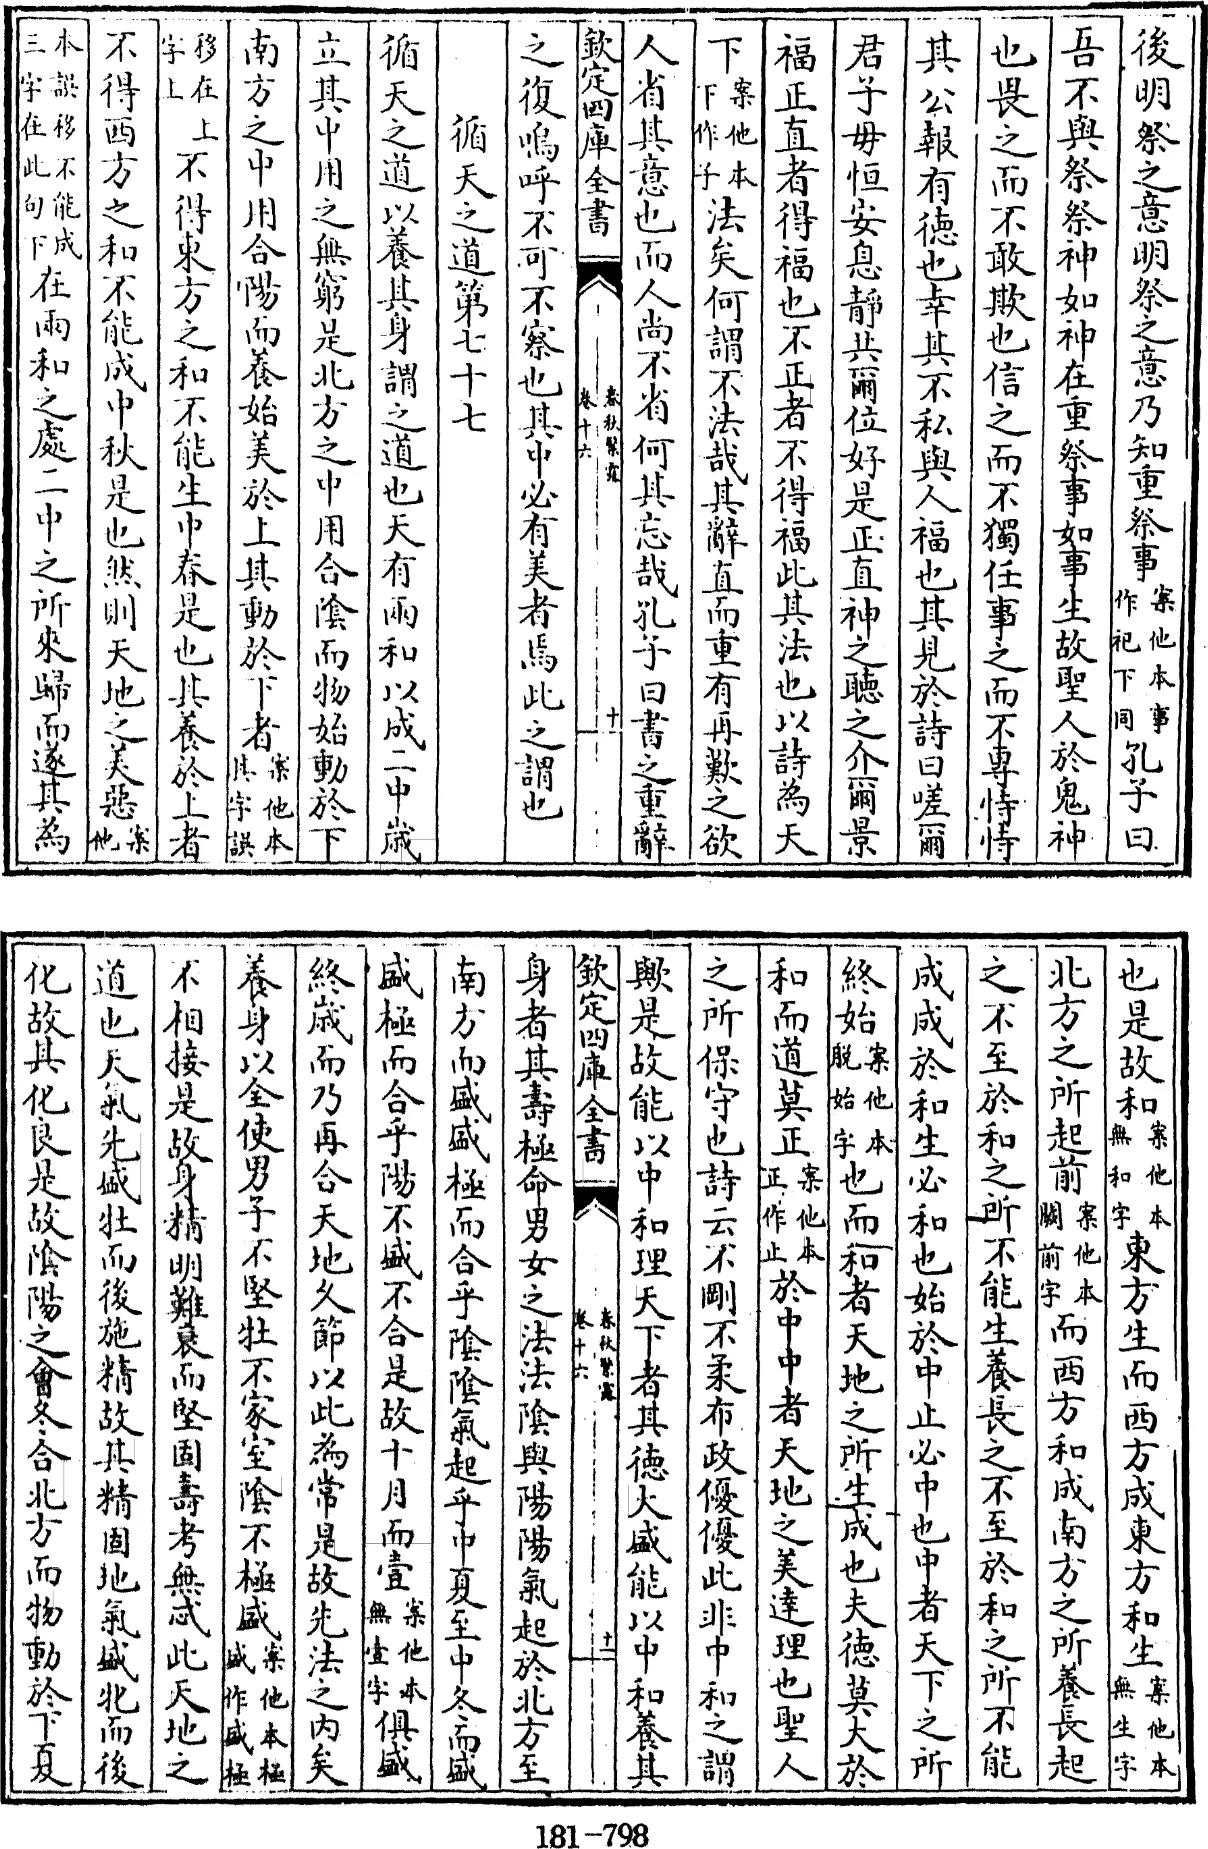 後明祭之意明祭之意乃知重祭事案他本事作祀下同孔子曰
吾不與祭祭神如神在重祭事如事生故聖人於鬼神
也畏之而不敢欺也信之而不獨任事之而不專恃恃
其公報有徳也幸其不私與人福也其見於詩曰嗟爾
君子毋恒安息靜共爾位好是正直神之聽之介爾景
福正直者得福也不正者不得福此其法也以詩為天
下案他本下作子法矣何謂不法哉其辭直而重有再歎之欲
人省其意也而人尚不省何其忘哉孔子曰書之重辭
欽定四庫全書 春秋繁露 卷十六 十
之復嗚呼不可不察也其中必有美者焉此之謂也
循天之道第七十七
循天之道以養其身謂之道也天有兩和以成二中歳
立其中用之無窮是北方之中用合陰而物始動於下
南方之中用合陽而養始美於上其動於下者案他本其字誤
移在上字上不得東方之和不能生中春是也其養於上者
不得西方之和不能成中秋是也然則天地之美惡案他
本誤移不能成三字在此句下在兩和之處二中之所來歸而遂其為
也是故和案他本無和字東方生而西方成東方和生案他本無生字
北方之所起前案他本闕前字而西方和成南方之所養長起
之不至於和之所不能生養長之不至於和之所不能
成成於和生必和也始於中止必中也中者天下之所
終始案他本脱始字也而和者天地之所生成也夫徳莫大於
和而道莫正案他本正作止於中中者天地之美達理也聖人
之所保守也詩云不剛不柔布政優優此非中和之謂
歟是故能以中和理天下者其徳大盛能以中和養其
欽定四庫全書 春秋繁露 卷十六 十一
身者其壽極命男女之法法陰與陽陽氣起於北方至
南方而盛盛極而合乎陰陰氣起乎中夏至中冬而盛
盛極而合乎陽不盛不合是故十月而壹案他本無壹字俱盛
終歳而乃再合天地久節以此為常是故先法之内矣
養身以全使男子不堅牡不家室陰不極盛案他本極盛作盛極
不相接是故身精明難衰而堅固壽考無忒此天地之
道也天氣先盛牡而後施精故其精固地氣盛牝而後
化故其化良是故陰陽之會冬合北方而物動於下夏
181-798